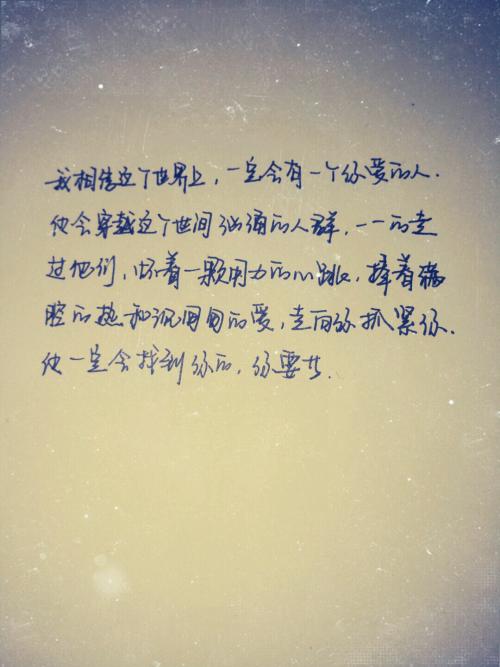 我相信这个世界上，一定会有一个你爱的人.
他会穿越这个世间汹涌的人群，一一的走
过他们，怀着一颗用力的心跳，捧着满
腔的热和沉甸甸的爱，走向你抓紧你.
他一定会找到你的，你要